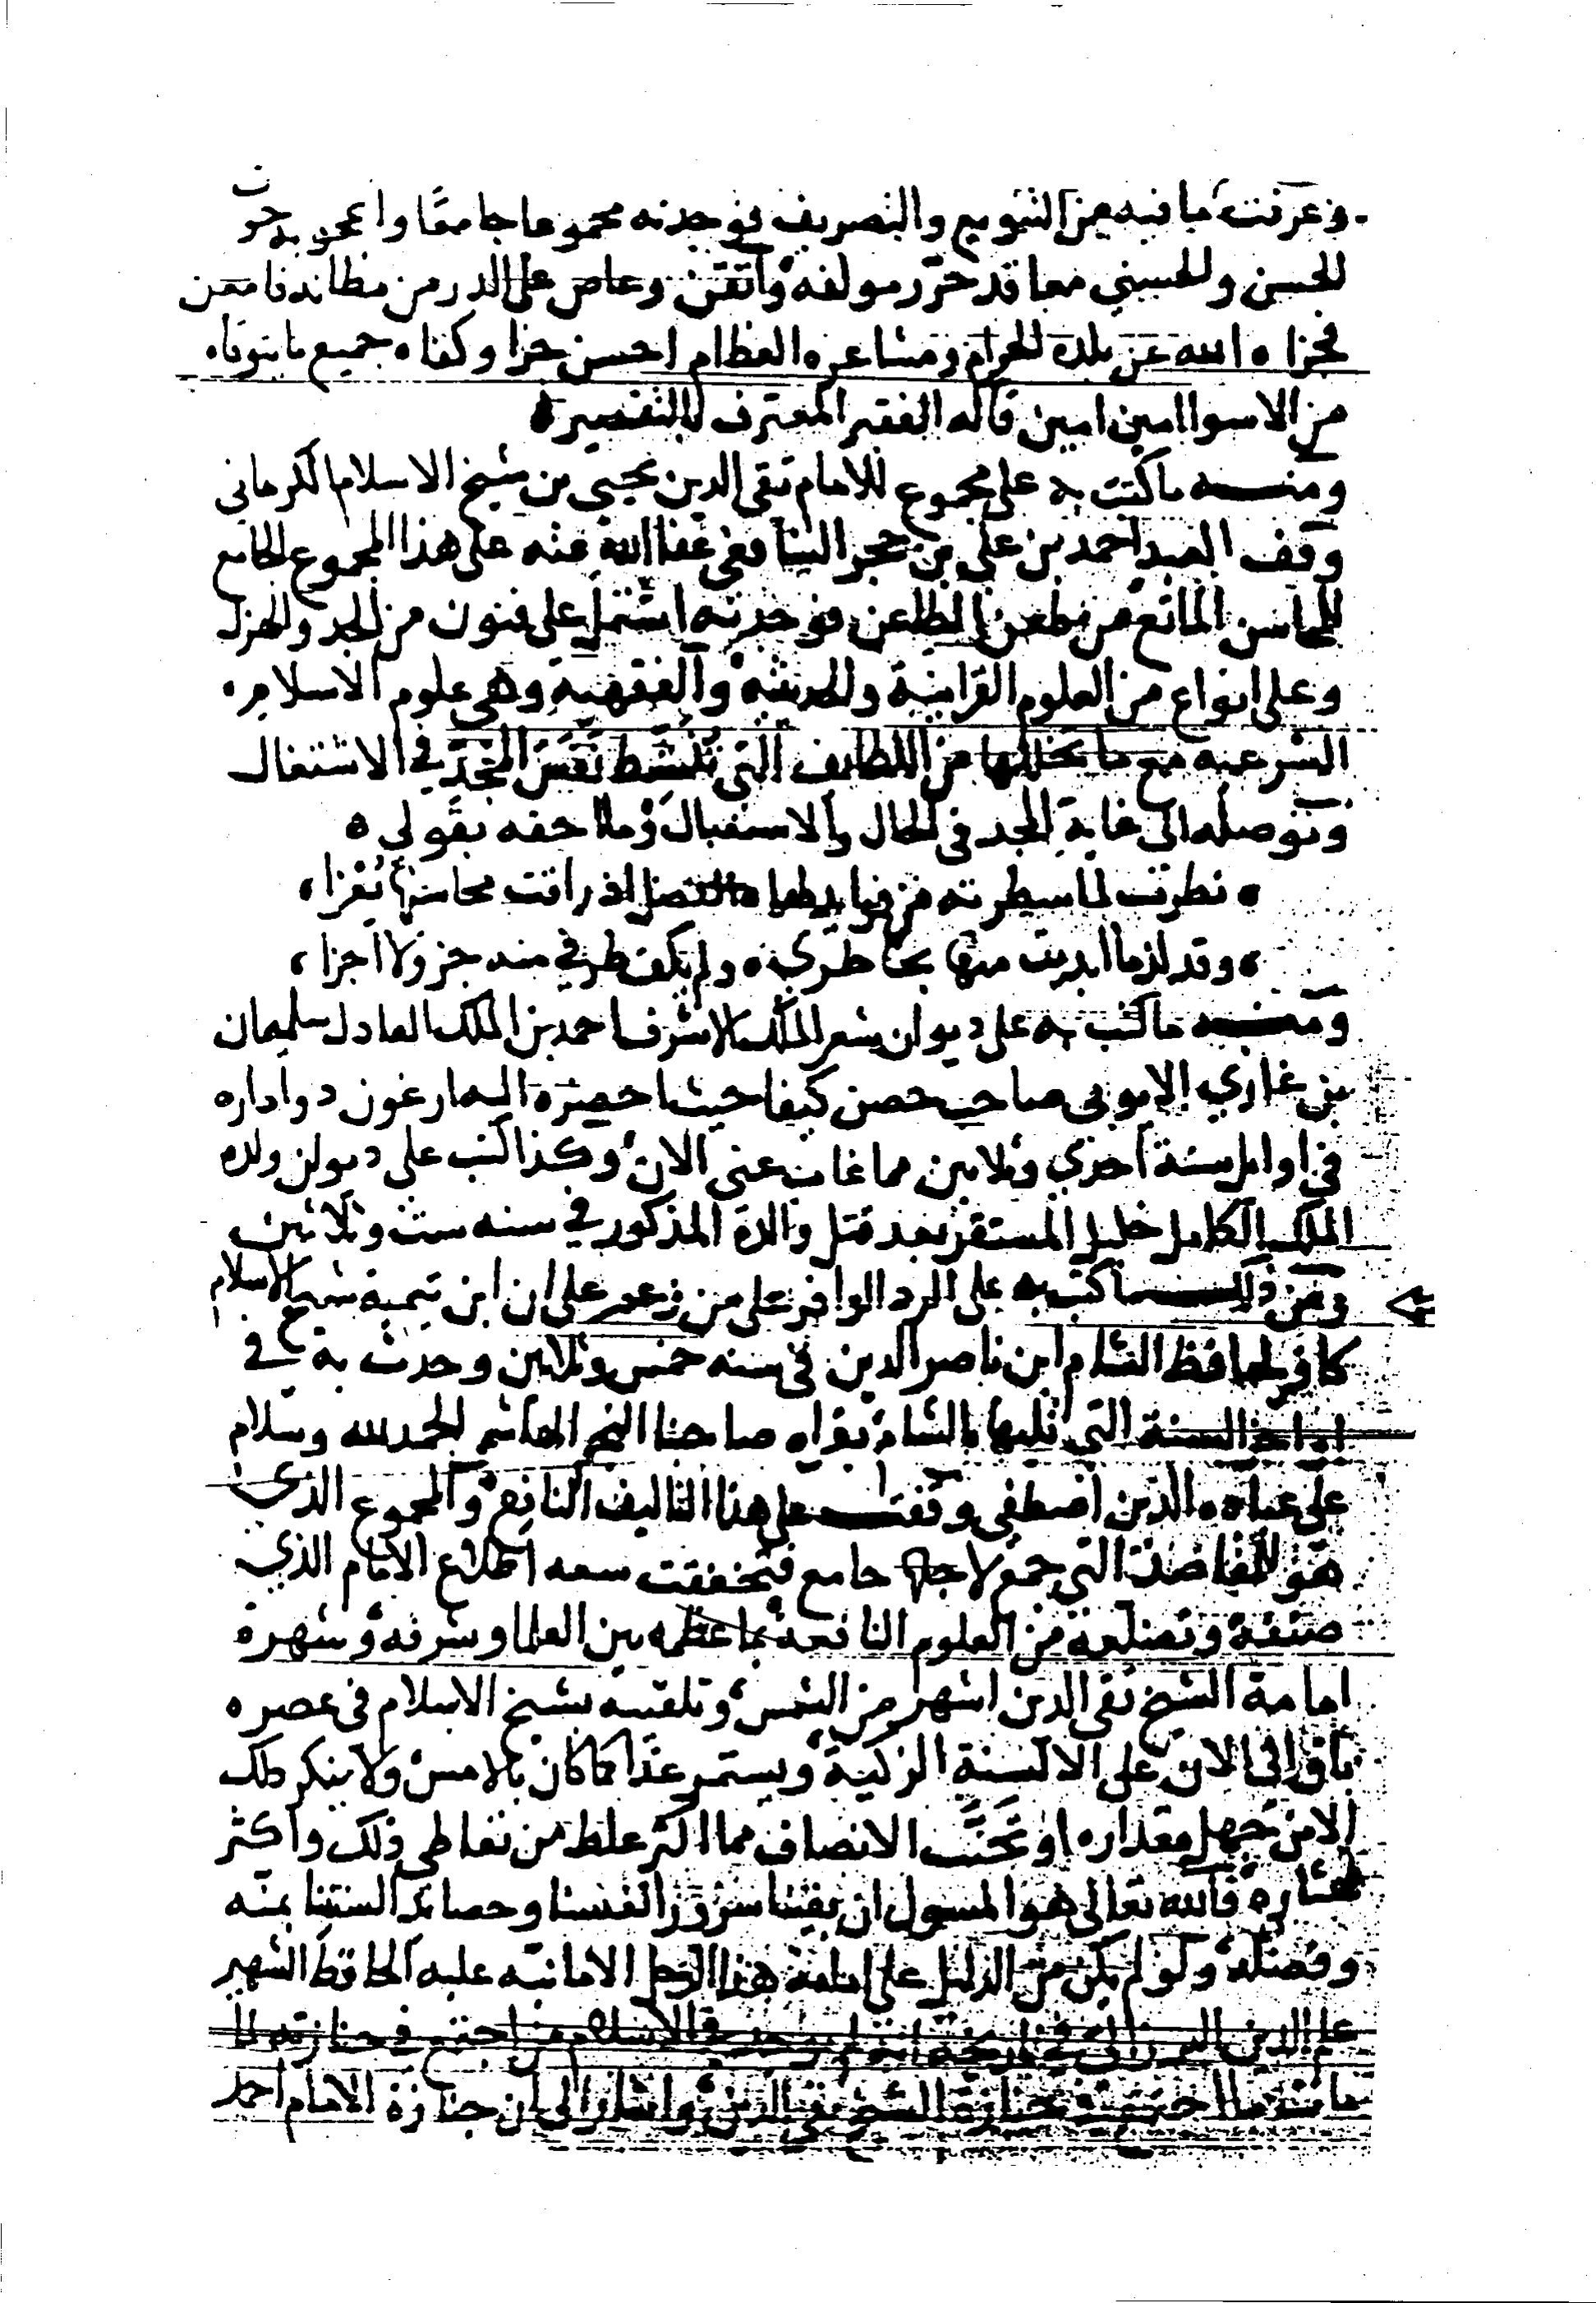 وعرفت ما فيه من التنويع والتصريف فوجدته مجموعا جامعا واعجوبه حوت
الحسن والحسني معا قد حرر مولفه واتقن وغاص على الدر من مظانه فامعن
فجزاه الله عن بلده الحرام ومشاعره العظام احسن جزا وكفاه جميع ما يتوقاه
من الاسوا امين امين قاله الفقير المعترف بالتقصير
ومنه ما كتب به على مجموع للامام تقي الدين يحيى بن شيخ الاسلام الكرماني
وقف العبد احمد بن علي بن حجر الشافعي عفا الله عنه على هذا المجموع الجامع
للمحاسن المانع من طعن الطاعن فوجدته اشتمل على فنون من الجد والهزل
وعلى انواع من العلوم القرانية والحديثية والفقهية وهي علوم الاسلام
الشرعيه مع ما تخللها من اللطايف التي تُنشط نفس المجد في الاشتغال
وتوصله الى غاية المجد في الحال والاستقبال وما احقه بقولي
نظرت لما سطرته من فوايد اذ راقت محاسنها تغزا
وقد لذ ما ابديت منها بخاطري ولم يكف طرفي منه جز ولا اجزا
ومنه ما كتب به على ديوان شعر الملك الاشرف احمد بن الملك العادل سليمان
بن غازي الايوبي صاحب حصن كيفا حيث احضره اليه ارغون دواداره
في اوايل سنة احدى وثلاثين مما غاب عني الان وكذا كتب على ديوان ولده
الملك الكامل خليل المستقر بعد قتل والده المذكور في سنه ست وثلاثين
ومن ذلك ما كتب به على الرد الوافر على من زعم على ان ابن تيمية شيخ الاسلام
كافر لحافظ الشام ابن ناصر الدين في سنه خمس وثلاثين وحدث به في
اواخر السنة التي تليها بالشام بقراه صاحبنا النجم الهاشمي الحمد لله وسلام
على عباده الذين اصطفى وقفت على هذا التاليف النافع والمجموع الذي
هو للمقاصد التي جمع لاجلها جامع فتحققت سعه اطلاع الامام الذي
صنفه وتضلعه من العلوم النافعة بما عظمه بين العلما وشرفه وشهرة
امامة الشيخ تقي الدين اشهر من الشمس وتلقيبه بشيخ الاسلام في عصره
باق الى الان على الالسنة الزكية ويستمر غدا كما كان بالامس ولا ينكر ذلك
الا من جهل مقداره او تجنب الانصاف مما اكثر غلط من تعاطى ذلك واكثر
عثاره فالله تعالى هو المسول ان يقينا شرور انفسنا وحصائد السنتنا بمنه
وفضله ولو لم يكن من الدليل على امامة هذا الرجل الا ما نبه عليه الحافظ الشهير
علم الدين البرزالي في تاريخه انه لم يوجد في الاسلام من اجتمع في جنازته لما
مات ما اجتمع في جنازة الشيخ تقي الدين واشار الى ان جنازة الامام احمد